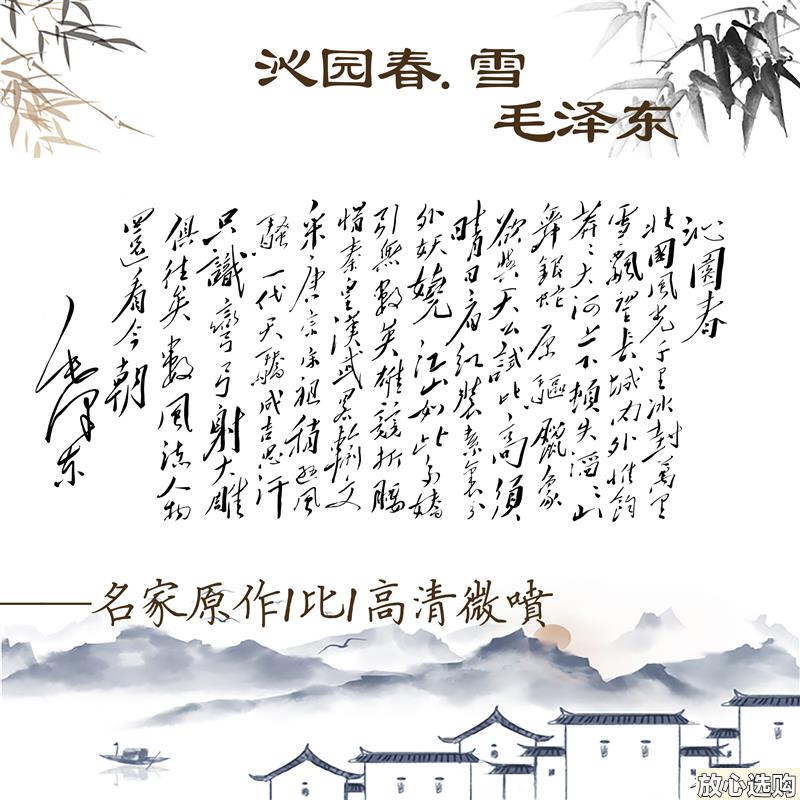 沁园春.雪
毛泽东
沁園春
北國風光千里冰封萬里
雪飄望长城内外惟餘
莽〻大河上下頓失滔〻山
舞銀蛇原驅臘象
欲與天公試比高須
晴日看红裝素裹分
外妖嬈江山如此多嬌
引無數英雄競折腰
惜秦皇漢武畧輸文
采唐宗宋祖稍遜風
騷一代天驕成吉思汗
只識彎弓射大雕
俱往矣數風流人物
還看今朝
毛泽东
名家原作1比1高清微噴
放心选购